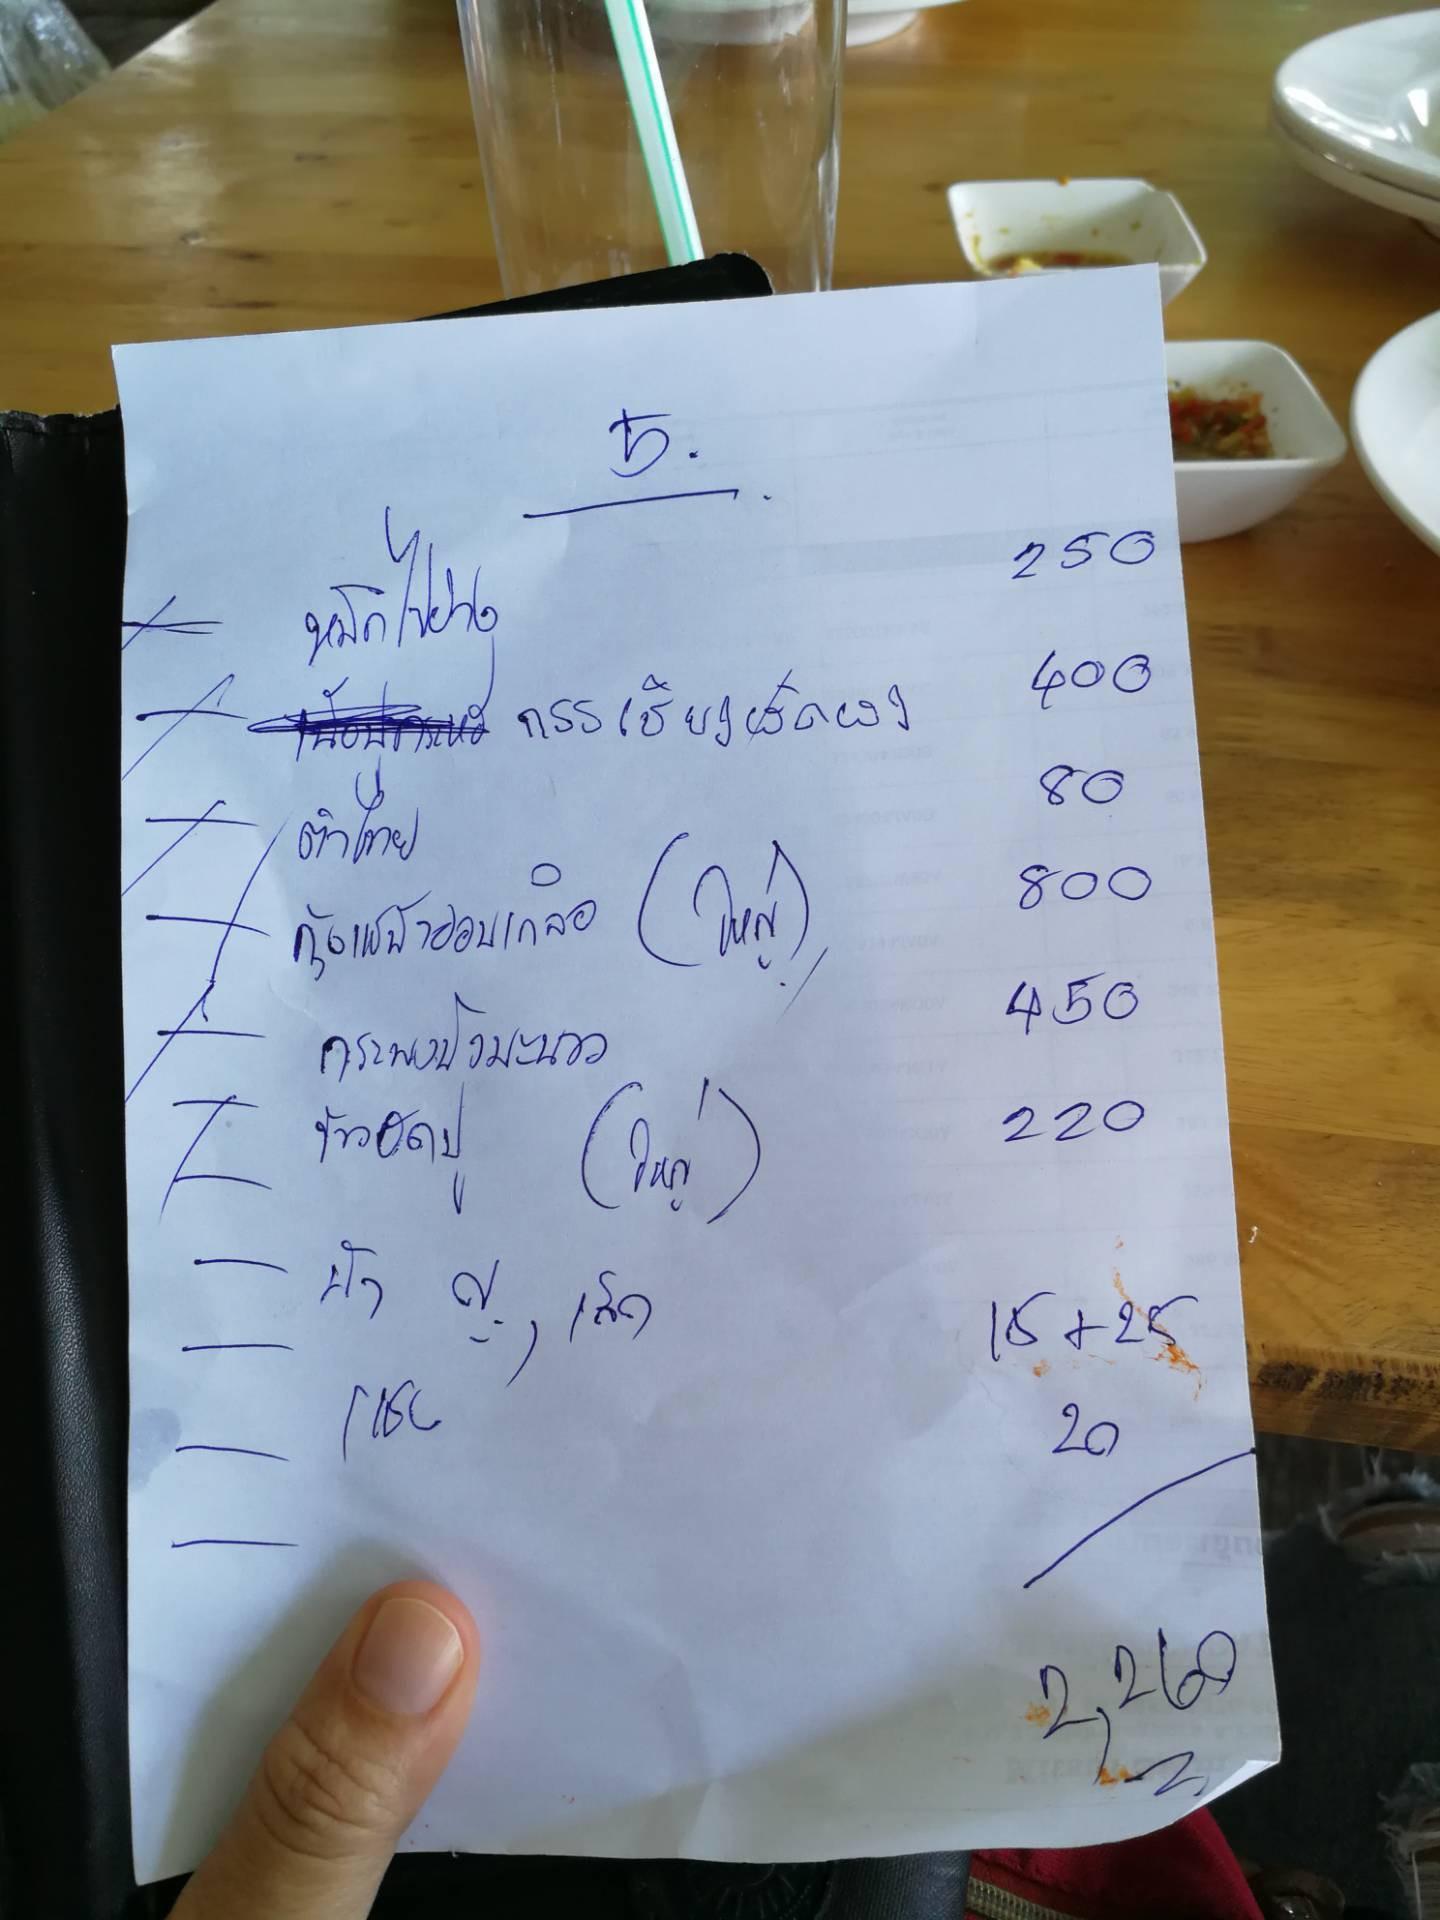 5.
หมึกไข่ย่าง 250
กรรเชียงผัดผง 400
ตำไทย 80
กุ้งแม่น้ำอบเกลือ (ใหญ่) 800
กระพงนึ่งมะนาว 450
ข้าวผัดปู (ใหญ่) 220
น้ำ ญ, เล็ก 15 + 25
20
2,260